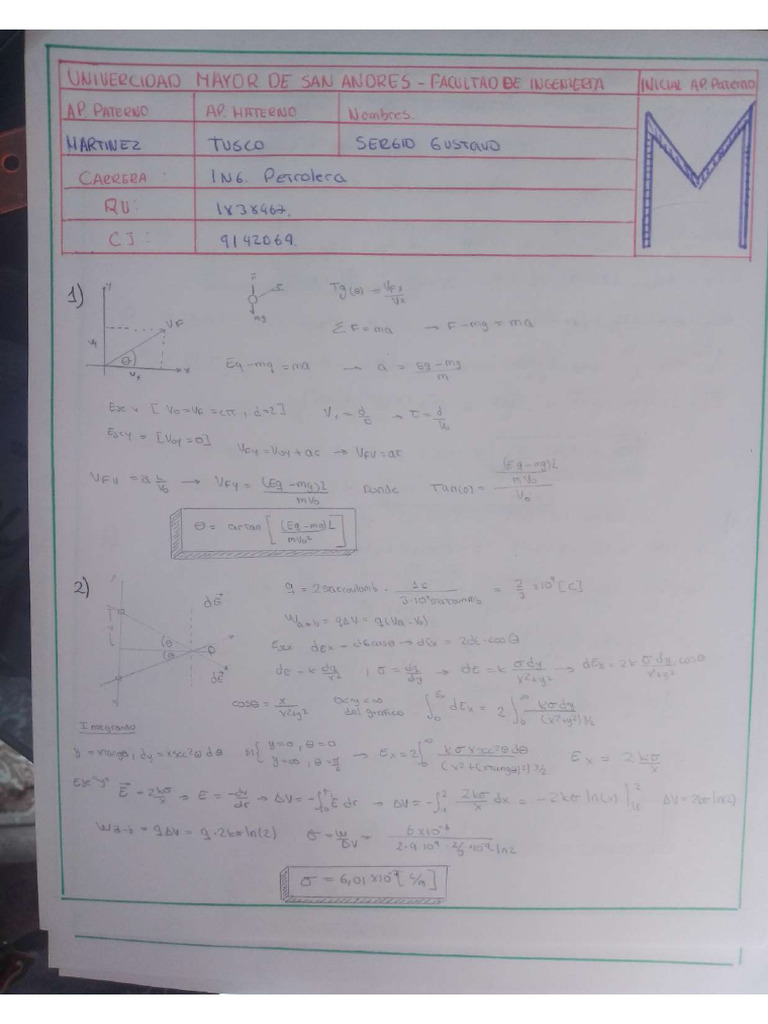 UNIVERCIDAD MAYOR DE SAN ANDRES - FACULTAD DE INGENIERIA
INICIAL AP. PATERNO
AP. PATERNO AP. MATERNO Nombres.
MARTINEZ TUSCO SERGIO GUSTAVO
M
CARRERA : ING. Petrolera
RU: 1838467.
CI: 9142069.
1)
y
VF
θ
Vx
x
F
mg
Tg(θ) = VFy/Vx
ΣF = ma → F - mg = ma
Eq - mg = ma → a = (Eq - mg)/m
V = d/t → t = d/V0
[V0y = 0]
VFy = V0y + at → VFy = at
VFy = a L/V0 → VFy = (Eq - mg)L/mV0 Donde Tan(θ) = ((Eq - mg)L/mV0)/V0
θ = arctan [(Eq - mg)L/mV0²]
2)
dE
θ
θ
dE
q = 2 statcoulomb · 1C/3·10⁹ statcoulomb = 2/3 × 10⁻⁹ [C]
Wa→b = qΔV = q(Va - Vb)
dEx = dE cosθ → dEx = 2dE · cosθ
dE = k dq/r² ; σ = dq/dy → dE = k σdy/x²+y² → dEx = 2k σdy/x²+y² cosθ
0<y<∞
del grafico
∫dEx = 2∫ kσdy/(x²+y²)3/2
Integrando
y = xtangθ, dy = xsec²θdθ si { y=0, θ=0
y=∞, θ=π/2
→ Ex = 2∫ kσxsec²θdθ/(x²+(xtangθ)²)3/2
Ex = 2kσ/x
E = 2kσ/x → E = -dv/dr → ΔV = -∫E dr → ΔV = -∫ 2kσ/x dx = -2kσ ln(x) ΔV = 2kσ ln(2)
Wa→b = qΔV = q·2kσ ln(2)
σ = 6,01×10⁻⁷ [C/m]